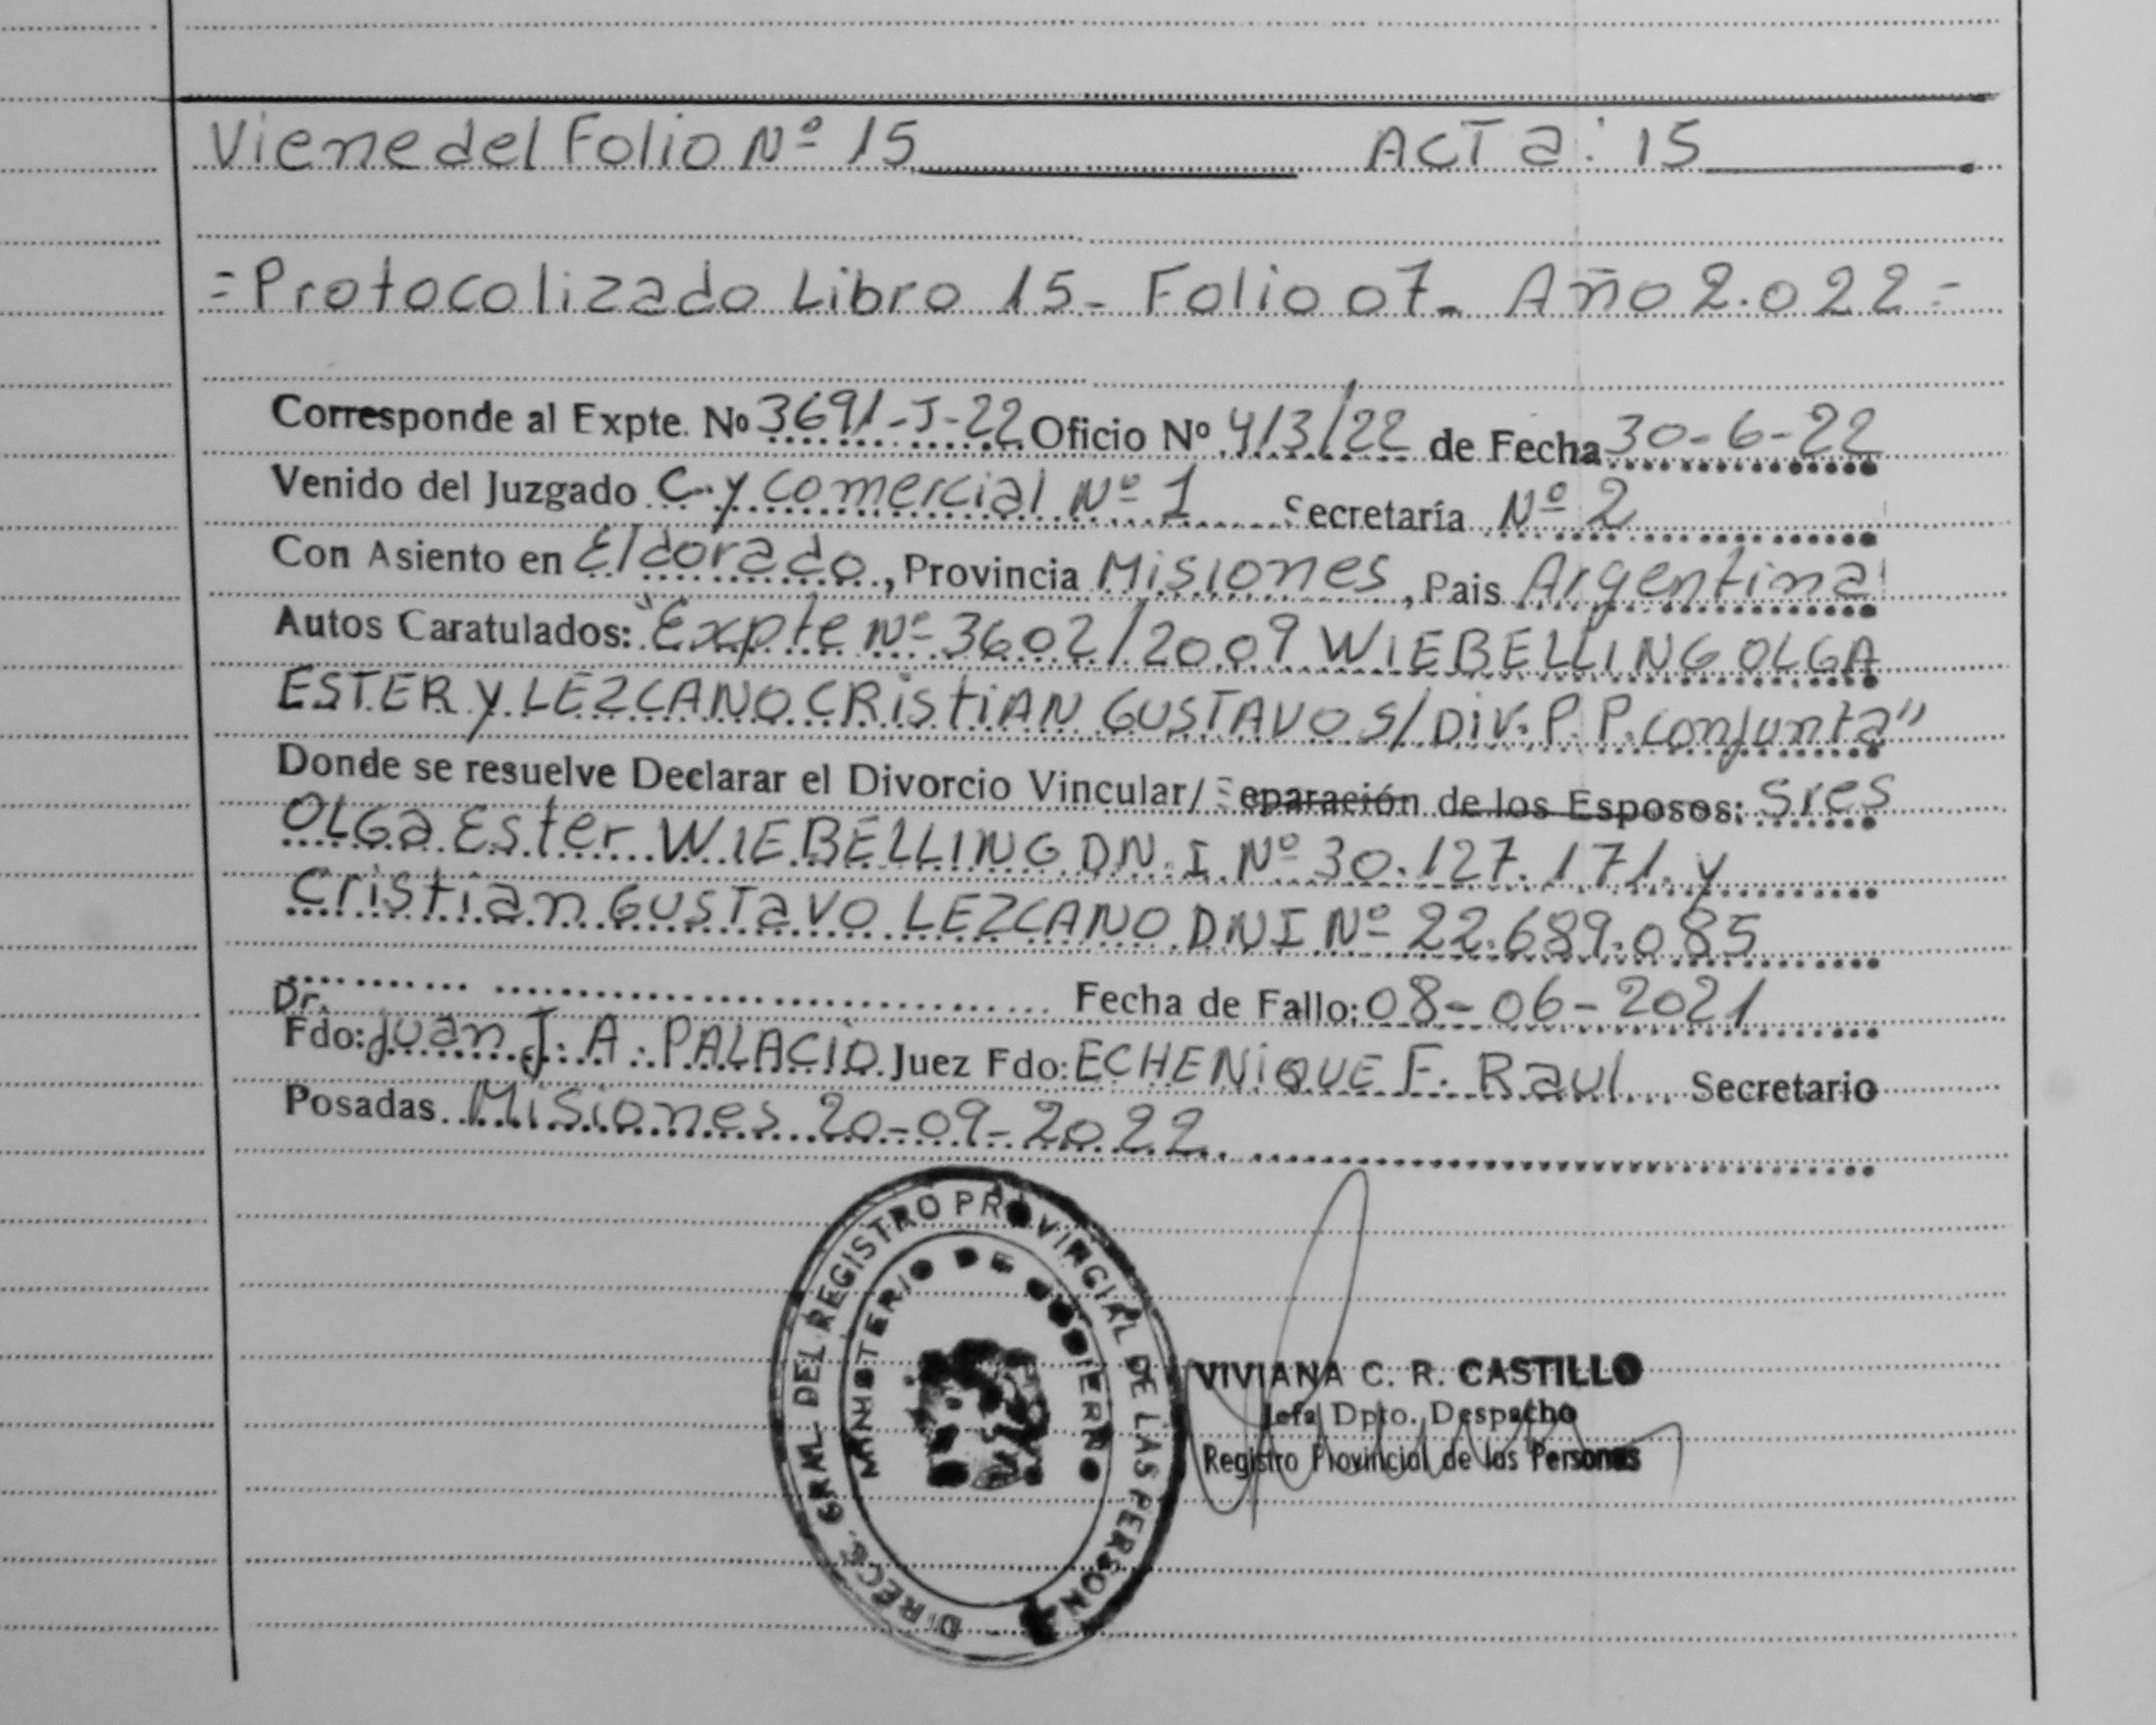 Viene del Folio Nº 15 Acta: 15
=Protocolizado Libro 15- Folio 07- Año 2.022=
Corresponde al Expte. Nº 3691-J-22 Oficio Nº 413/22 de Fecha 30-6-22
Venido del Juzgado C. y Comercial Nº 1 Secretaría Nº 2
Con Asiento en Eldorado, Provincia Misiones, Pais Argentina
Autos Caratulados: "Expte Nº 3602/2009 WIEBELLING OLGA
ESTER y LEZCANO CRISTIAN GUSTAVO S/ DIV. P. P. conjunta"
Donde se resuelve Declarar el Divorcio Vincular/ Separación de los Esposos: Sres
OLGa Ester WIEBELLING DN.I Nº 30.127.171. y
Cristian GUSTaVO LEZCANO DNI Nº 22.689.085
Fecha de Fallo: 08-06-2021
Dr.
Fdo: Juan J. A. PALACIO Juez Fdo: ECHENIQUE F. Raul Secretario
Posadas Misiones 20-09-2022
DIREC. GRAL. DEL REGISTRO PROVINCIAL DE LAS PERSON
MINISTERIO DE GOBIERNO
VIVIANA C. R. CASTILLO
Jefa Dpto. Despacho
Registro Provincial de las Personas